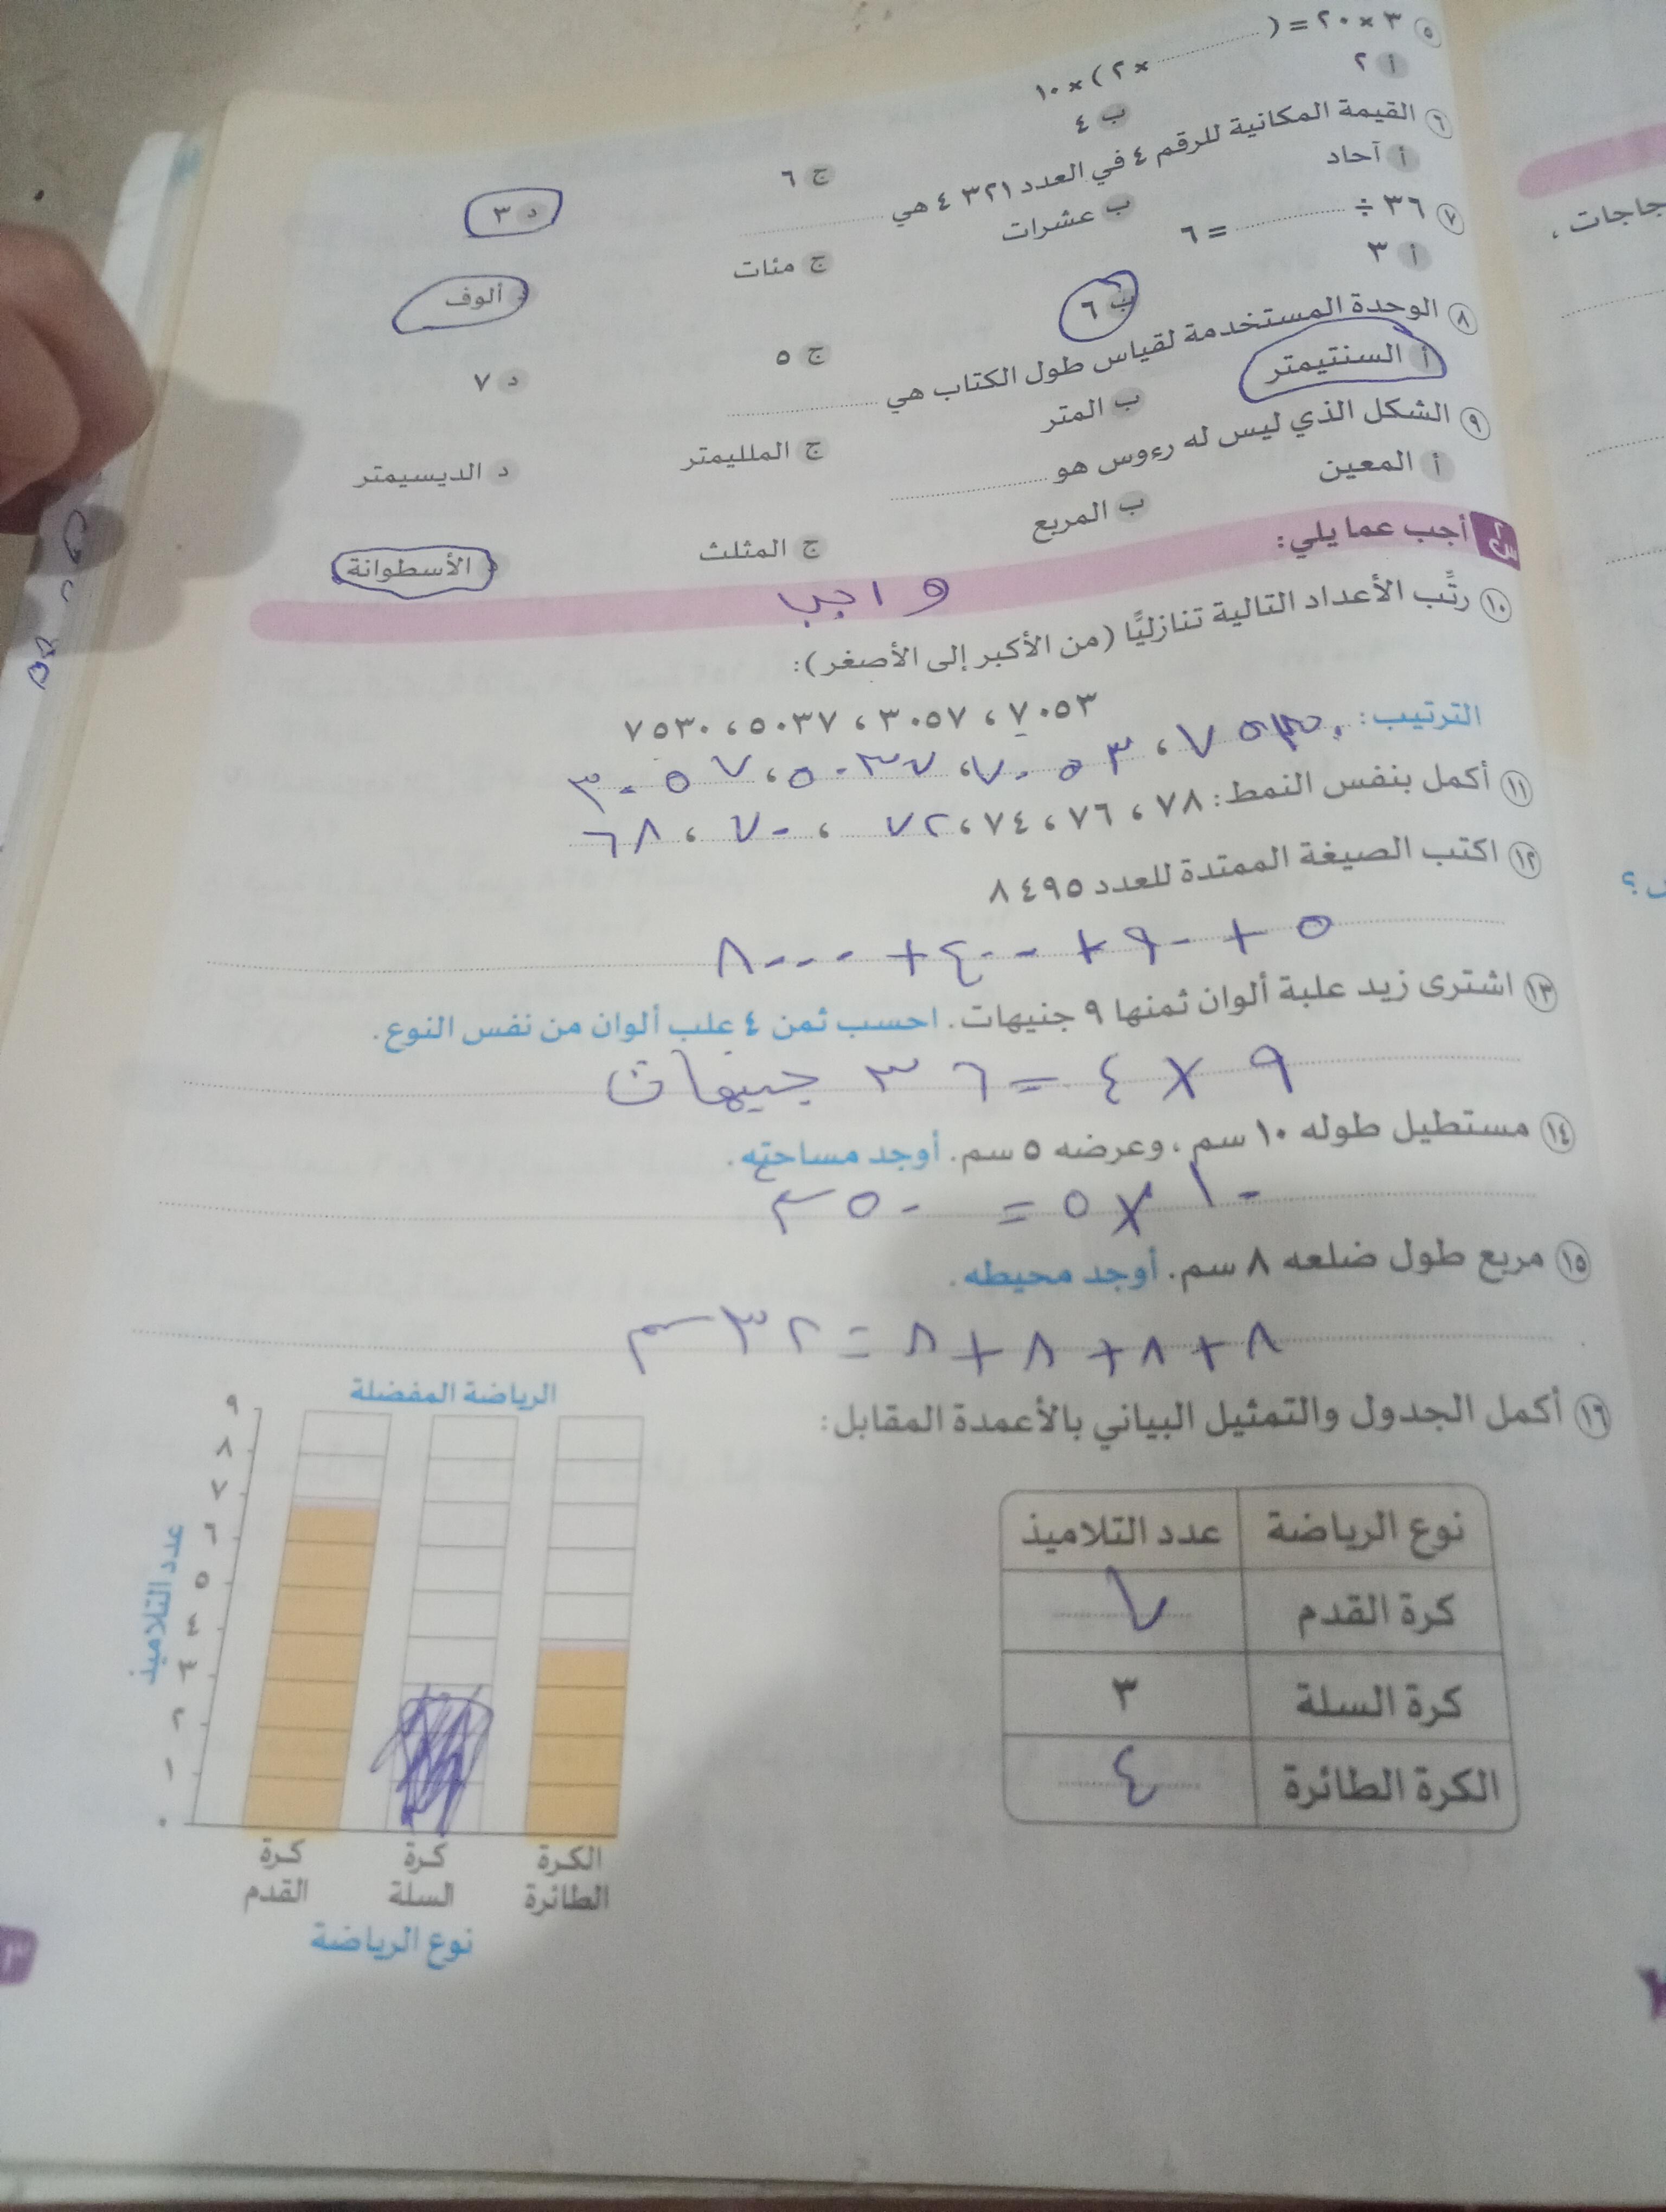 ٥ ٣ × ٢٠ = ( .......... × ٢ ) × ١٠
أ ٢ ب ٤ ج ٦ د ٣
٦ القيمة المكانية للرقم ٤ في العدد ٣٢١ ٤ هي ..........
أ آحاد ب عشرات ج مئات د ألوف
٧ ٣٦ ÷ .......... = ٦
أ ٣ ب ٦ ج ٥ د ٧
٨ الوحدة المستخدمة لقياس طول الكتاب هي ..........
أ السنتيمتر ب المتر ج الملليمتر د الديسيمتر
٩ الشكل الذي ليس له رءوس هو ..........
أ المعين ب المربع ج المثلث د الأسطوانة
س٢ أجب عما يلي:
واجب
١٠ رتِّب الأعداد التالية تنازليًّا (من الأكبر إلى الأصغر):
٧٠٥٣ ، ٣٠٥٧ ، ٥٠٣٧ ، ٧٥٣٠
الترتيب: ٧٥٣٠ ، ٧٠٥٣ ، ٥٠٣٧ ، ٣٠٥٧
١١ أكمل بنفس النمط: ٧٨ ، ٧٦ ، ٧٤ ، ٧٢ ، ٧٠ ، ٦٨
١٢ اكتب الصيغة الممتدة للعدد ٤٩٥ ٨
٥ + ٩٠ + ٤٠٠ + ٨٠٠٠
١٣ اشترى زيد علبة ألوان ثمنها ٩ جنيهات. احسب ثمن ٤ علب ألوان من نفس النوع.
٩ × ٤ = ٣٦ جنيهات
١٤ مستطيل طوله ١٠ سم، وعرضه ٥ سم. أوجد مساحته.
١٠ × ٥ = ٥٠ سم
١٥ مربع طول ضلعه ٨ سم. أوجد محيطه.
٨ + ٨ + ٨ + ٨ = ٣٢ سم
١٦ أكمل الجدول والتمثيل البياني بالأعمدة المقابل:
نوع الرياضة عدد التلاميذ
كرة القدم ٧
كرة السلة ٣
الكرة الطائرة ٤
الرياضة المفضلة
عدد التلاميذ
٩
٨
٧
٦
٥
٤
٣
٢
١
٠
كرة القدم كرة السلة الكرة الطائرة
نوع الرياضة
جاجات،